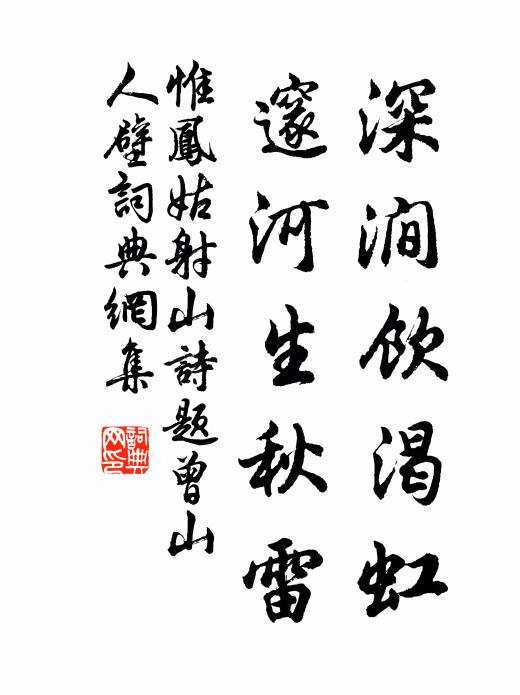 深澗飲渴虹
邃河生秋雷
惟鳳姑射山詩題曾山
人壁詞典網集
詞典
网印